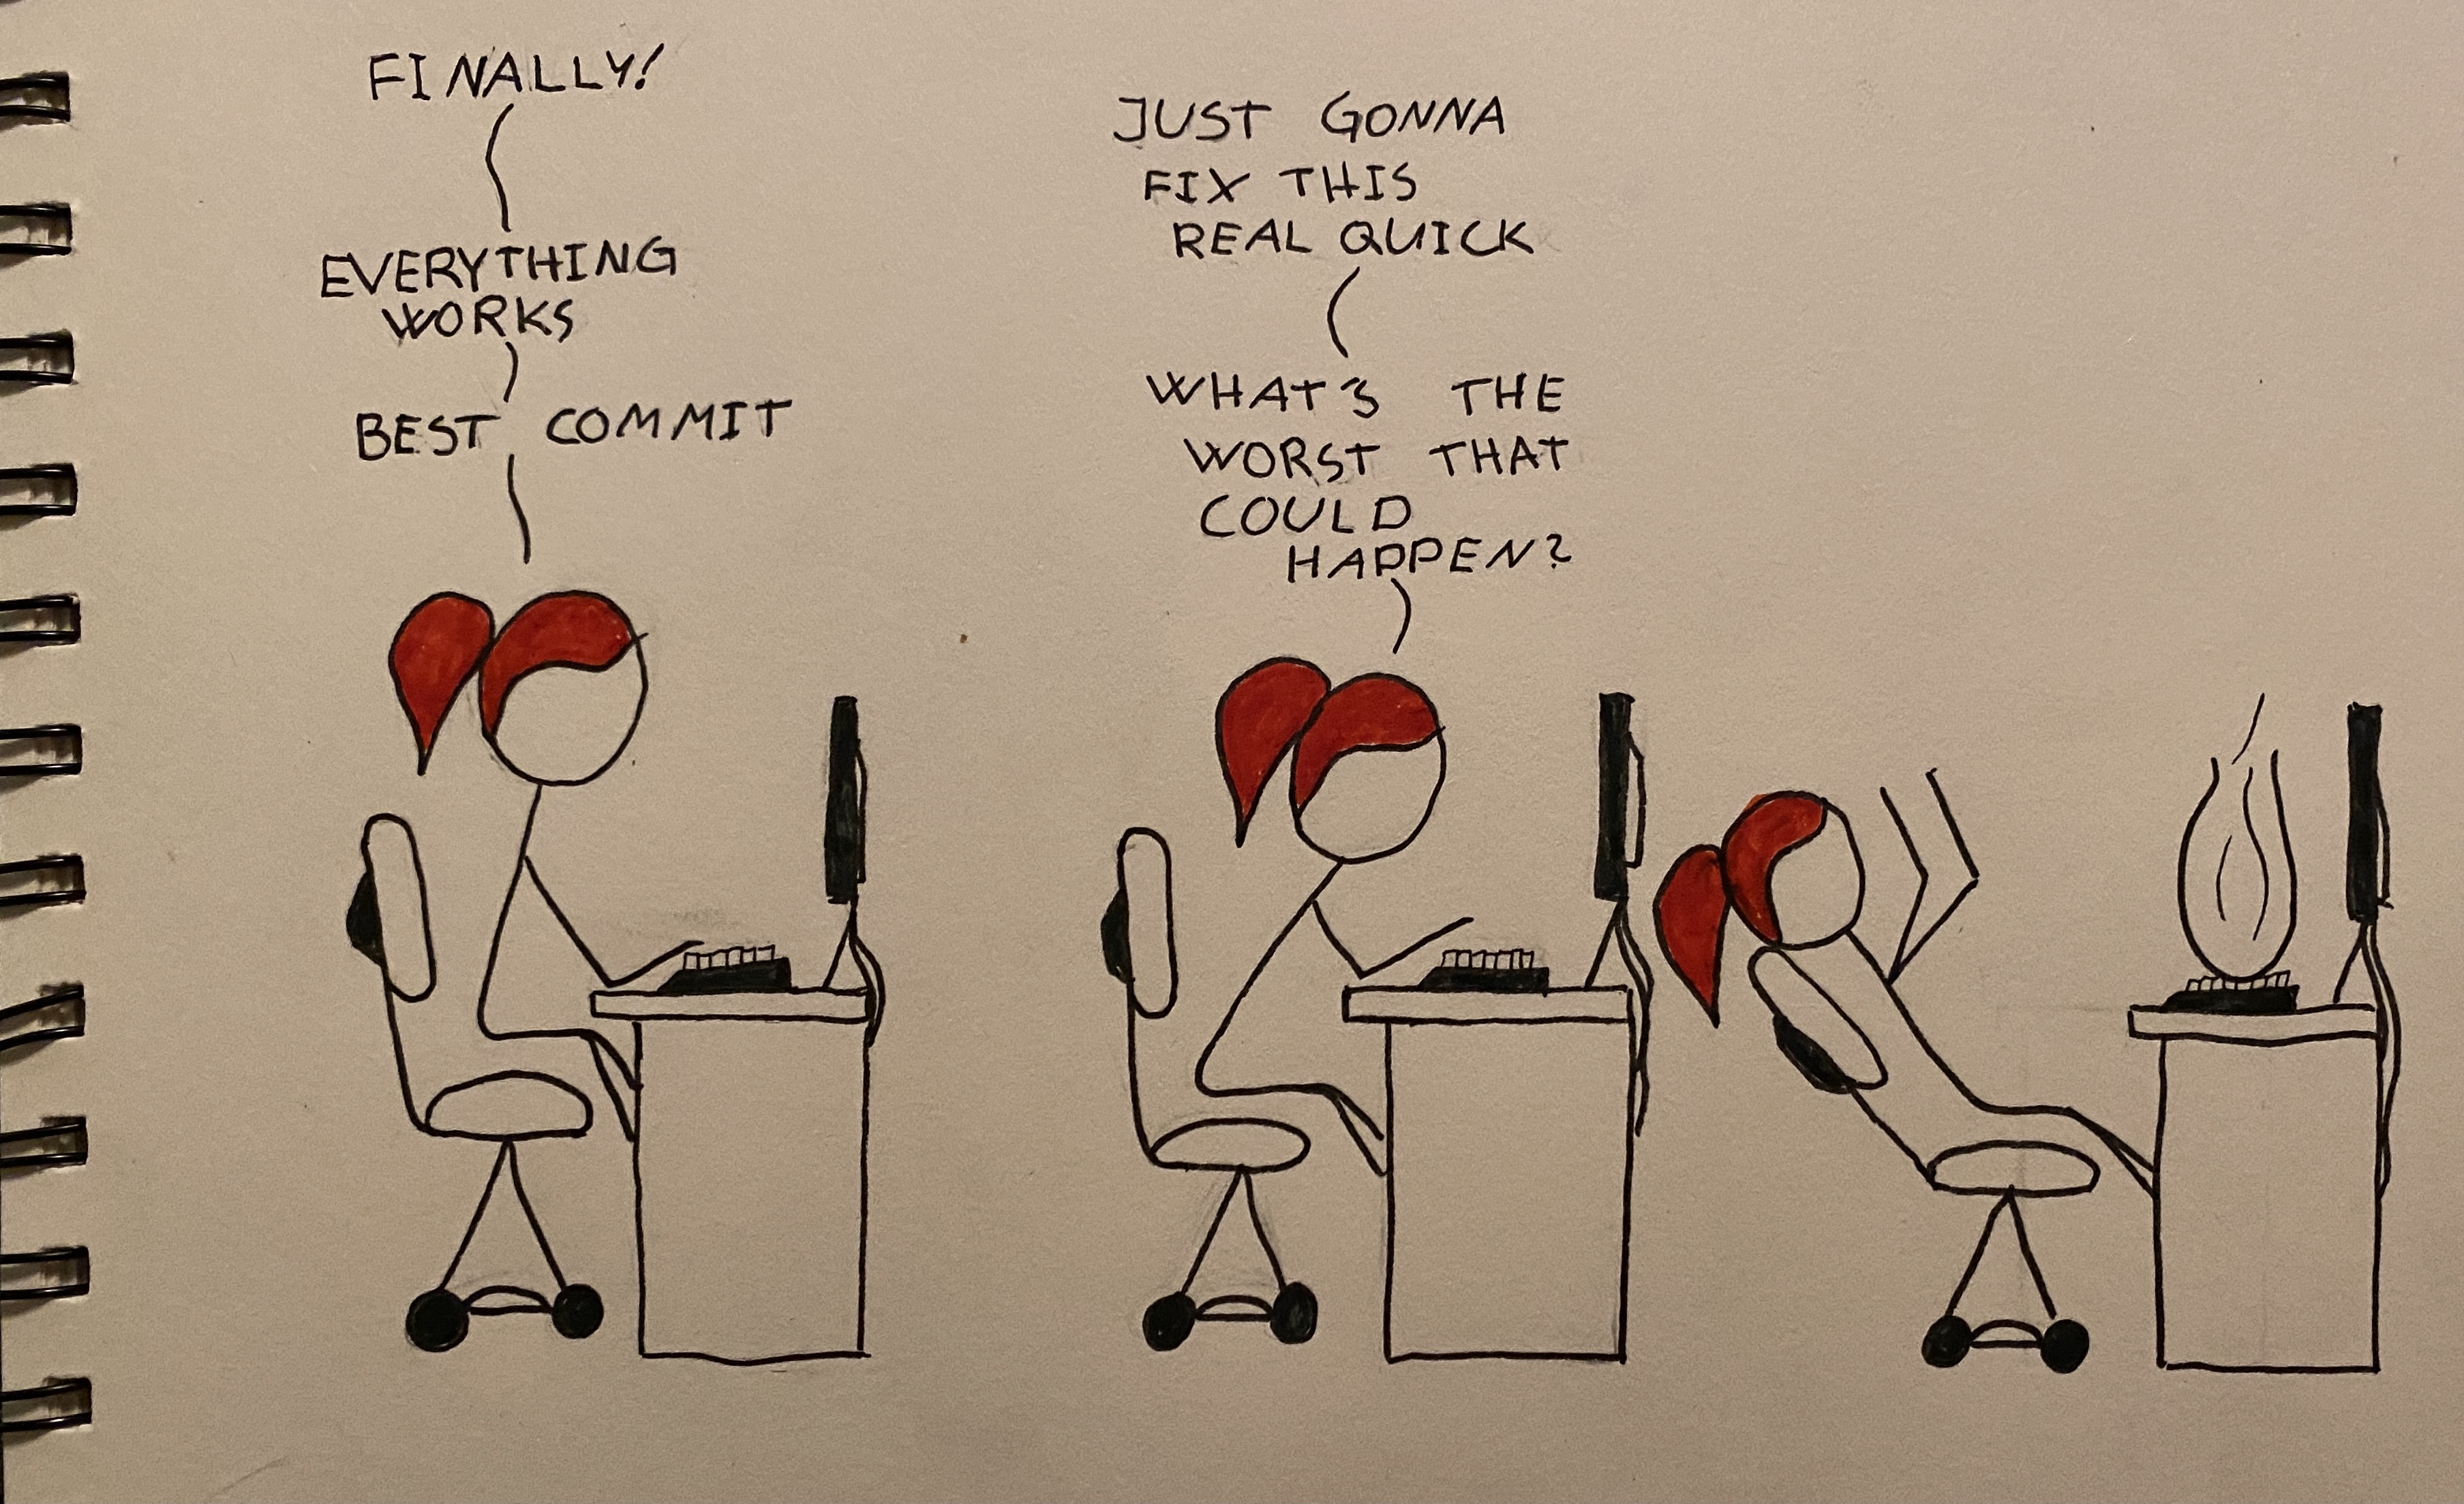 FINALLY!
EVERYTHING
WORKS
BEST COMMIT
JUST GONNA
FIX THIS
REAL QUICK
WHAT'S THE
WORST THAT
COULD
HAPPEN?